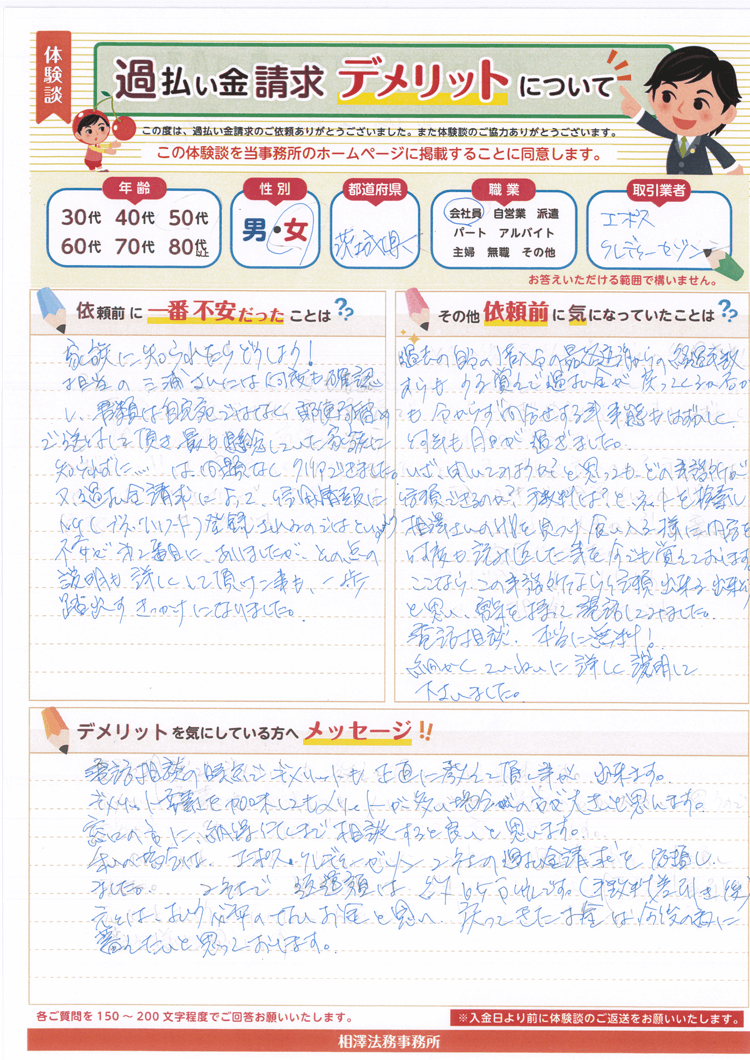 体験談
過払い金請求 デメリットについて
この度は、過払い金請求のご依頼ありがとうございました。また体験談のご協力ありがとうございます。
この体験談を当事務所のホームページに掲載することに同意します。
年齢
30代 40代 50代
60代 70代 80代以上
性別
男・女
都道府県
茨城県
職業
会社員 自営業 派遣
パート アルバイト
主婦 無職 その他
取引業者
エポス
クレディーセゾン
お答えいただける範囲で構いません。
依頼前に一番不安だったことは??
家族に知られたらどうしよう!
担当の三浦さんには何度も確認
し、書類は自宅ではなく、郵便局留め
で送付して頂き最も懸念していた家族に
知られずに…は、問題なくクリアできました。
又、過払金請求によって、信用情報に
キズ(ブラックリスト)登録されるのではという
不安が第2番目に、ありましたが、その点の
説明も詳しくして頂けた事も、一歩
踏出すきっかけになりました。
その他依頼前に気になっていたことは??
過去の自分の借入金の最終返済からの経過年数
すらも、うる覚えで過払金が戻ってくるのか否か
も、分からず問合せする事自体もはずかしく
何年も月日が過ぎました。
いざ、聞いてみようか?と思っても、どの事務所が
信頼できるのか?手数料は?と、ネットを検索し
相澤さんのHPを見つけ食い入る様に内容を
何度も読み返した事を今でも覚えております。
ここなら、この事務所なら信頼出来る
と思い、勇気を持って電話してみました。
電話相談、本当に無料!
細かくていねいに詳しく説明して
下さいました。
デメリットを気にしている方へメッセージ!!
電話相談の時点でデメリットも正直に教えて頂く事が出来ます。
デメリットを加味してもメリットが多い場合の方が大きいと思います。
窓口の方に、納得行くまで相談すると良いと思います。
私の場合は、エポス・クレディーセゾン2社の過払金請求を依頼し
ました。 2社で 返還額は、約65万円です。(手数料差引き後)
戻ってきたお金は今後の為に
蓄えたいと思っております。
各ご質問を150〜200文字程度でご回答お願いいたします。
※入金日より前に体験談のご返送をお願いいたします。
相澤法務事務所